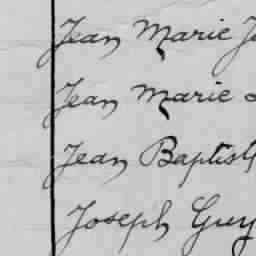 Jean Marie
Jean Marie
Jean Baptist
Joseph Guy